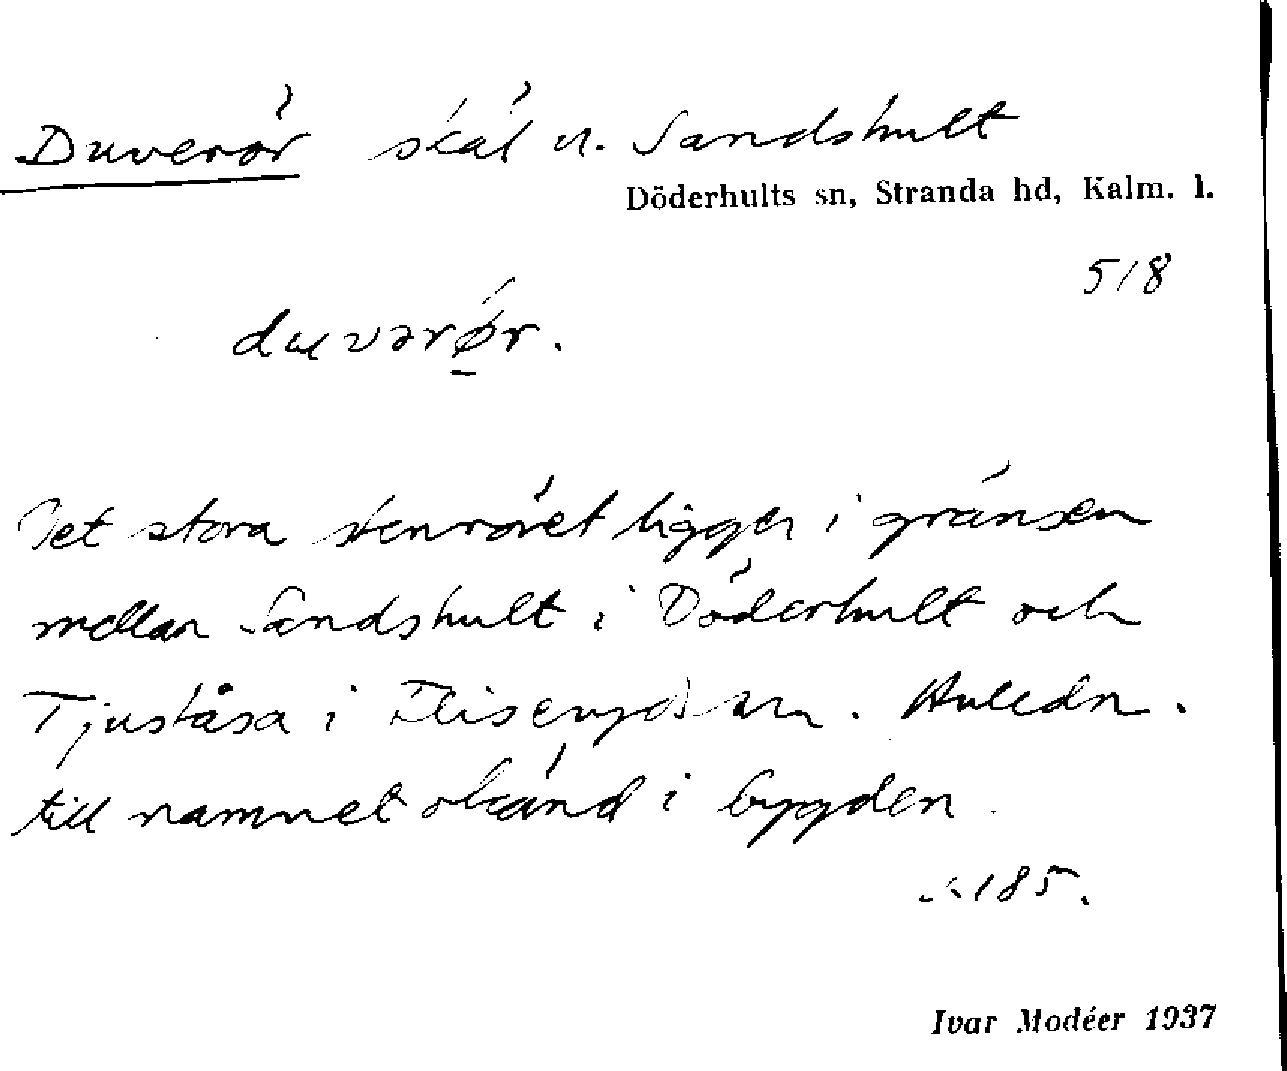 Duverör skäl u. Sandshult
Döderhults sn, Stranda hd, Kalm. l.
518
duvərǿr.
Det stora stenröret ligger i gränsen
mellan Sandshult i Döderhult och
Tjuståsa i Fliseryds sn. Anledn.
till namnet okänd i bygden.
185.
Ivar Modéer 1937